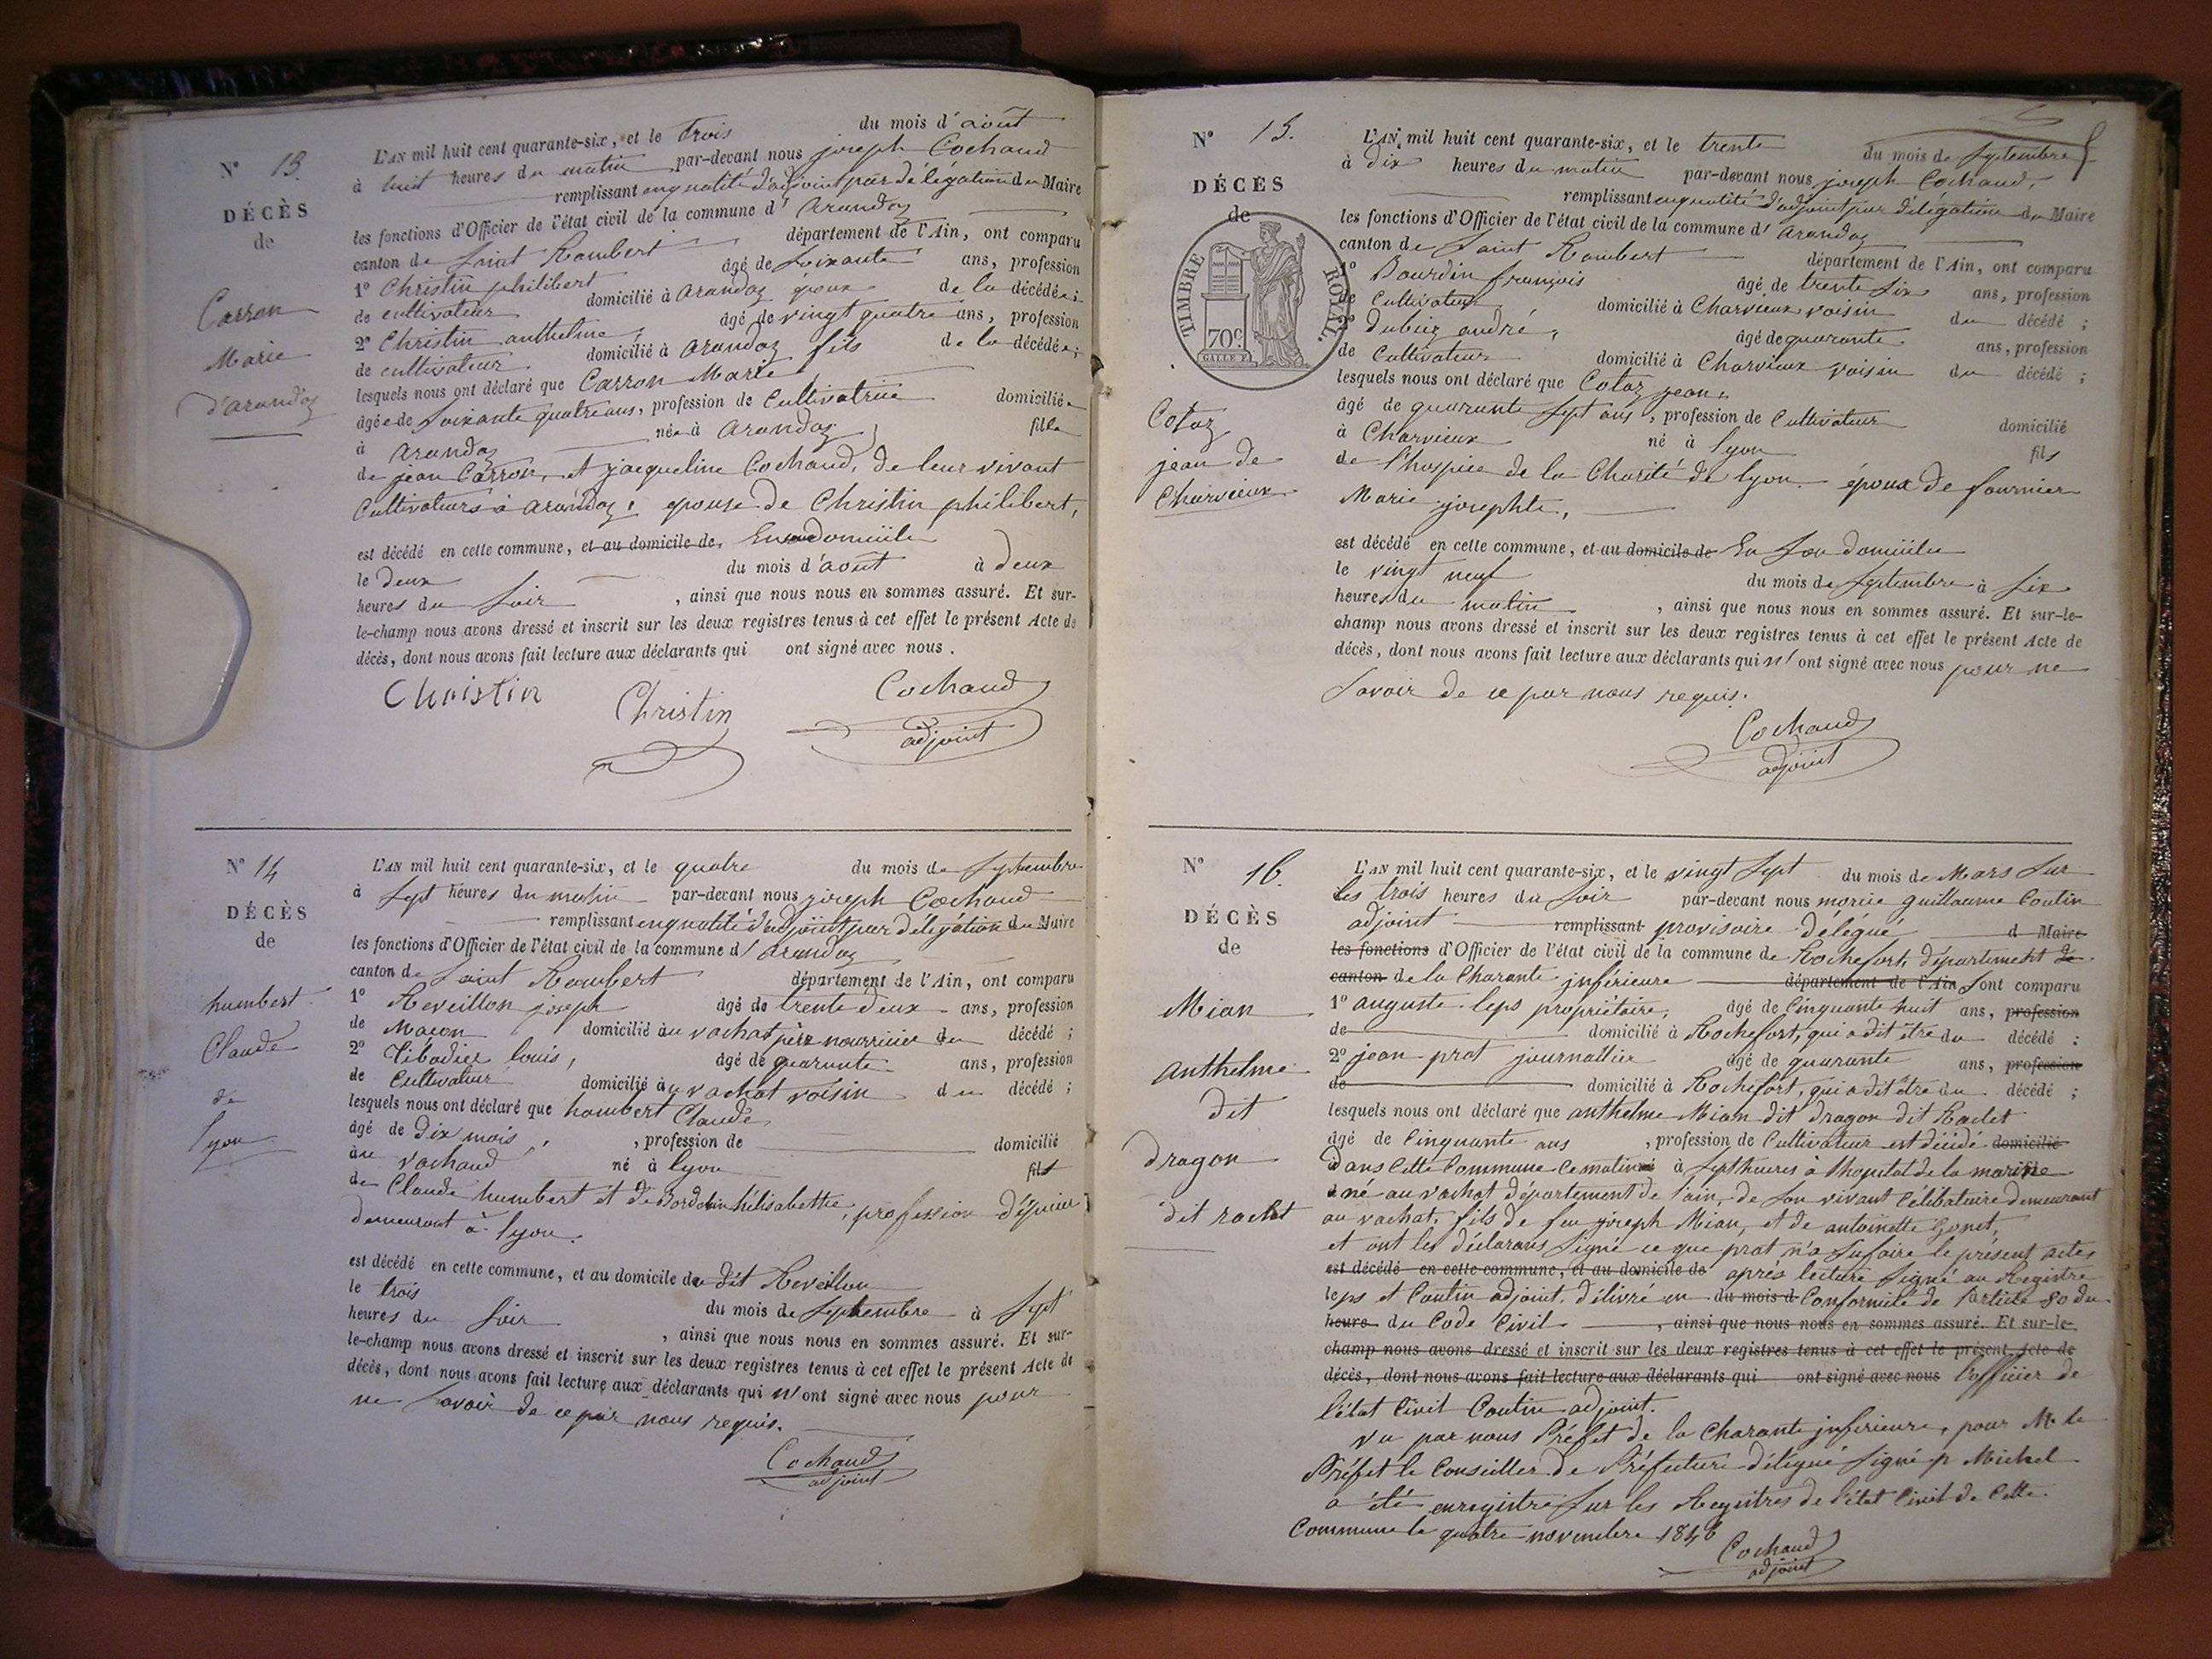 N° 13.
DÉCÈS
de
Carron
Marie
d'arandaz
L'AN mil huit cent quarante-six, et le trois du mois d'août
à huit heures du matin par-devant nous joseph Cochaud
remplissant en qualité d'adjoint par délégation du Maire
les fonctions d'Officier de l'état civil de la commune d'arandaz
canton de Saint Rambert département de l'Ain, ont comparu
1° Christin philibert âgé de soixante ans, profession
de cultivateur domicilié à arandaz époux de la décédée;
2° Christin anthelme, âgé de vingt quatre ans, profession
de cultivateur domicilié à arandaz fils de la décédée;
lesquels nous ont déclaré que Carron Marie,
âgée de soixante quatre ans, profession de Cultivatrice domiciliée
à arandaz née à arandaz fille
de jean Carron, et jacqueline Cochaud, de leur vivant
Cultivateurs à arandaz, epouse de Christin philibert,
est décédé en cette commune, et au domicile de, En son domicile
le deux du mois d'août à deux
heures du soir, ainsi que nous nous en sommes assuré. Et sur-
le-champ nous avons dressé et inscrit sur les deux registres tenus à cet effet le présent Acte de
décès, dont nous avons fait lecture aux déclarants qui ont signé avec nous.
Christin Christin Cochaud
adjoint
N° 14
DÉCÈS
de
humbert
Claude
de
lyon
L'AN mil huit cent quarante-six, et le quatre du mois de Septembre
à Sept heures du matin par-devant nous joseph Cochaud
remplissant en qualité d'adjoint par délégation du Maire
les fonctions d'Officier de l'état civil de la commune d'arandaz
canton de Saint Rambert département de l'Ain, ont comparu
1° Reveillon joseph âgé de trente deux ans, profession
de Maçon domicilié au vachat père nourricier du décédé;
2° Tibadier louis, âgé de quarante ans, profession
de Cultivateur domicilié au vachat voisin du décédé;
lesquels nous ont déclaré que humbert Claude
âgé de dix mois, profession de domicilié
au vachaud né à lyon fils
de Claude humbert et de hélisabette, profession d'épicier
demeurant à lyon.
est décédé en cette commune, et au domicile du dit Reveillon
le trois du mois de Septembre à Sept
heures du soir, ainsi que nous nous en sommes assuré. Et sur-
le-champ nous avons dressé et inscrit sur les deux registres tenus à cet effet le présent Acte de
décès, dont nous avons fait lecture aux déclarants qui n'ont signé avec nous pour
ne savoir de ce par nous requis.
Cochaud
adjoint
N° 15.
DÉCÈS
de
TIMBRE ROYAL.
70c.
Cotaz
jean de
Charvieux
L'AN mil huit cent quarante-six, et le trente du mois de Septembre
à dix heures du matin par-devant nous joseph Cochaud,
remplissant en qualité d'adjoint par délégation du Maire
les fonctions d'Officier de l'état civil de la commune d'arandaz
canton de Saint Rambert département de l'Ain, ont comparu
1° Bourdin françois âgé de trente six ans, profession
de Cultivateur domicilié à Charvieux voisin du décédé;
2° andré, âgé de quarante ans, profession
de Cultivateur domicilié à Charvieux voisin du décédé;
lesquels nous ont déclaré que Cotaz jean,
âgé de quarante sept ans, profession de Cultivateur domicilié
à Charvieux né à lyon fils
de l'hospice de la Charité de lyon époux de fournier
Marie josephte,
est décédé en cette commune, et au domicile de En son domicile
le vingt neuf du mois de Septembre à six
heures du matin, ainsi que nous nous en sommes assuré. Et sur-le-
champ nous avons dressé et inscrit sur les deux registres tenus à cet effet le présent Acte de
décès, dont nous avons fait lecture aux déclarants qui n'ont signé avec nous pour ne
savoir de ce par nous requis.
Cochaud
adjoint
N° 16.
DÉCÈS
de
Mian
anthelme
dit
dragon
dit raclet
L'AN mil huit cent quarante-six, et le vingt sept du mois de Mars sur
les trois heures du soir par-devant nous guillaume Coutin
adjoint remplissant provisoire délégué d Maire
les fonctions d'Officier de l'état civil de la commune de Rochefort, département de
canton de la Charante inférieure département de l'Ain, sont comparu
1° auguste leps propriétaire, âgé de Cinquante huit ans, profession
de domicilié à Rochefort, qui a dit être du décédé;
2° jean prat journallier âgé de quarante ans, profession
de domicilié à Rochefort, qui a dit être du décédé;
lesquels nous ont déclaré que anthelme Mian dit dragon dit Raclet
âgé de Cinquante ans, profession de Cultivateur est décédé domicilié
Dans Cette Commune Ce matin né à Sept heures à l'hopital de la marine
né au vachat département de l'ain, de son vivant Célibataire demeurant
au vachat, fils de feu joseph Mian, et de antoinette Gonet,
et ont les déclarans signé ce que prat n'a su faire le présent acte
est décédé en cette commune, et au domicile de après lecture signé au Registre
leps et Coutin adjoint. délivré en du mois d Conformité de l'article 80 du
heure du Code Civil, ainsi que nous nous en sommes assuré. Et sur-le-
champ nous avons dressé et inscrit sur les deux registres tenus à cet effet le présent Acte de
décès, dont nous avons fait lecture aux déclarants qui ont signé avec nous l'officier de
l'état Civil Coutin adjoint.
vu par nous Préfet de la Charante inferieure, pour Mr le
Préfet le Conseiller de Préfecture délégué signé p Michel
a été enregistré sur les Registres de l'état Civil de Cette
Commune le quatre novembre 1846
Cochaud
adjoint